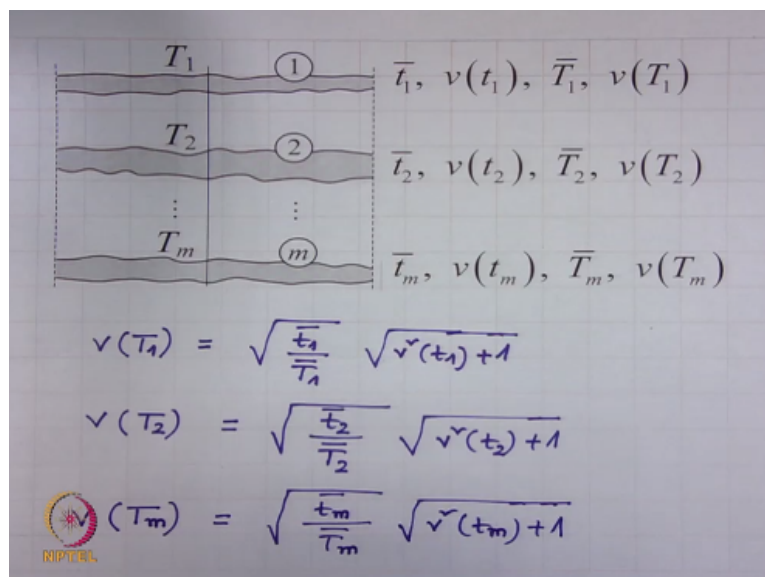 T₁ ① t̄₁, v(t₁), T̿₁, v(T₁)
T₂ ② t̄₂, v(t₂), T̄₂, v(T₂)
⋮ ⋮
Tₘ ⓜ t̄ₘ, v(tₘ), T̄ₘ, v(Tₘ)
v(T₁) = √(t̄₁/T̿₁) √(v²(t₁)+1)
v(T₂) = √(t̄₂/T̿₂) √(v²(t₂)+1)
v(Tₘ) = √(t̄ₘ/T̄ₘ) √(v²(tₘ)+1)
NPTEL